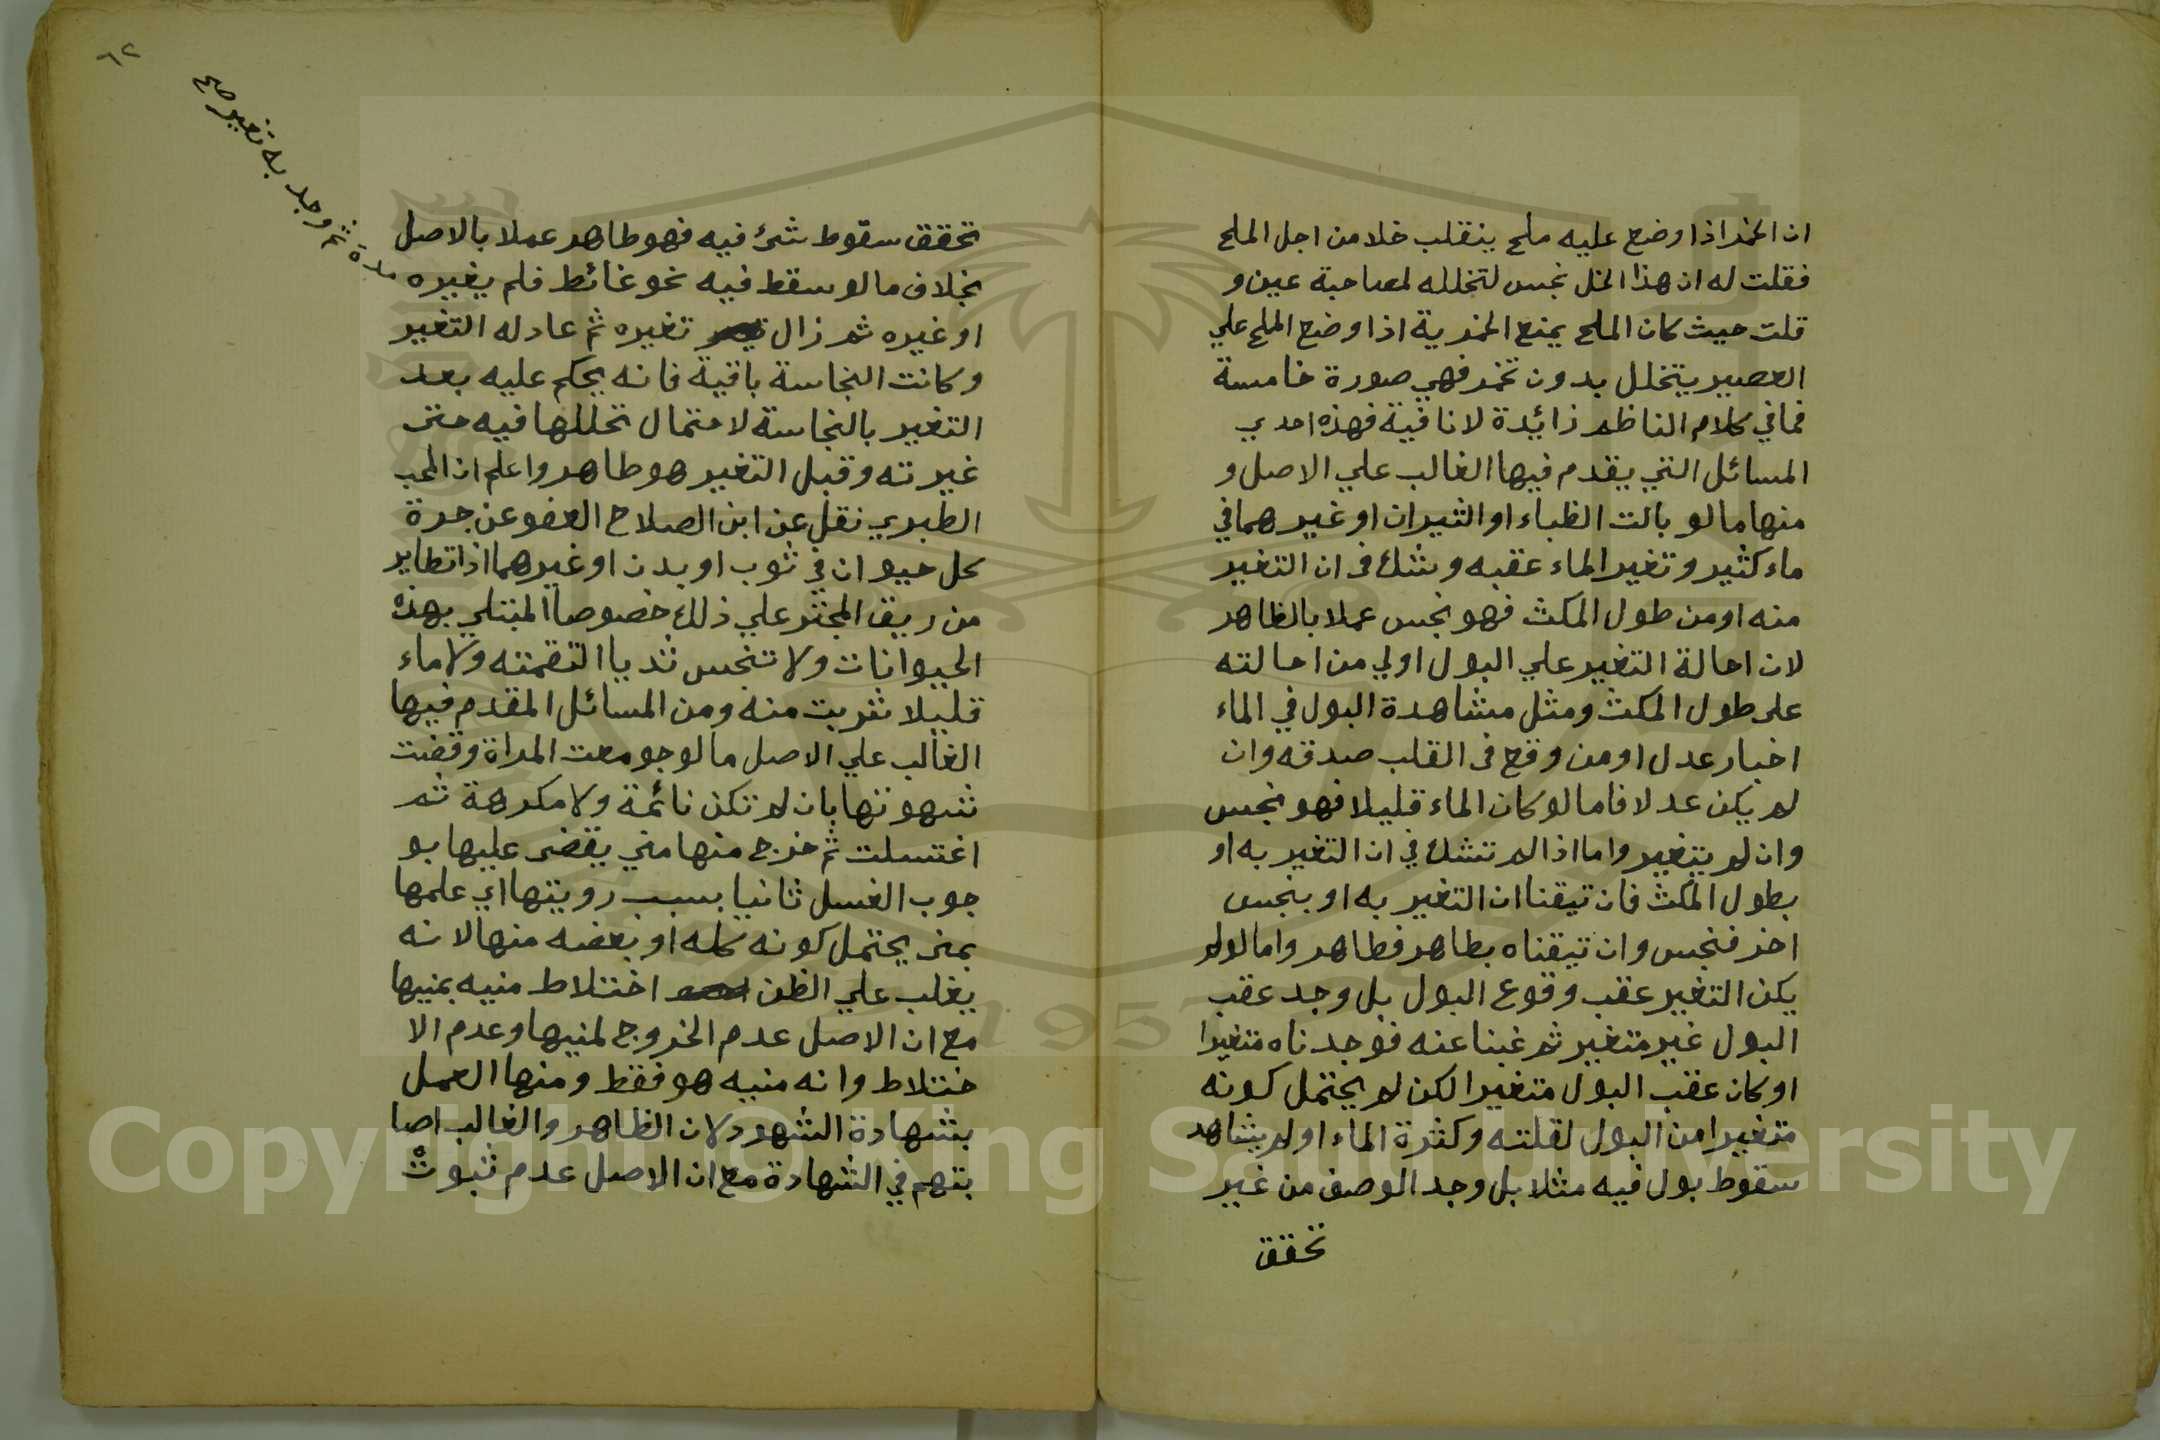 ان الخمر اذا وضع عليه ملح ينقلب خلا من اجل الملح
فقلت له ان هذا الخل نجس لتخلله لمصاحبة عين و
قلت حيث كان الملح يمنع الخمرية اذا وضع الملح علي
العصير يتخلل بدون تخمر فهي صورة خامسة
فما في كلام الناظم زائدة لا نافية فهذه احدي
المسائل التي يقدم فيها الغالب علي الاصل و
منها ما لو بالت الظباء او الثيران او غيرهما في
ماء كثير وتغير الماء عقبه وشك في ان التغير
منه او من طول المكث فهو نجس عملا بالظاهر
لان احالة التغير علي البول اولي من احالته
على طول المكث ومثل مشاهدة البول في الماء
اخبار عدل او من وقع في القلب صدقه وان
لم يكن عدلا فاما لو كان الماء قليلا فهو نجس
وان لم يتغير واما اذا لم تشك في ان التغير به او
بطول المكث فان تيقنا ان التغير به او بنجس
اخر فنجس وان تيقناه بطاهر فطاهر واما لو لم
يكن التغير عقب وقوع البول بل وجد عقب
البول غير متغير ثم غبنا عنه فوجدناه متغيرا
او كان عقب البول متغيرا لكن لم يحتمل كونه
متغيرا من البول لقلته وكثرة الماء او لم يشاهد
سقوط بول فيه مثلا بل وجد الوصف من غير
تحقق
٦٢
تحقق سقوط شئ فيه فهو طاهر عملا بالاصل
بخلاف ما لو سقط فيه نحو غائط فلم يغيره
مدة ثم وجد به تغير صح
او غيره ثم زال تغيره ثم عاد له التغير
وكانت النجاسة باقية فانه يحكم عليه بعد
التغير بالنجاسة لاحتمال تحللها فيه حتى
غيرته وقبل التغير هو طاهر واعلم ان المحب
الطبري نقل عن ابن الصلاح العفو عن جرة
كل حيوان في ثوب او بدن او غيرهما اذا تطاير
من ريق المجتر علي ذلك خصوصا المبتلي بهذه
الحيوانات ولا تنجس ثديا التقمته ولا ماء
قليلا شربت منه ومن المسائل المقدم فيها
الغالب علي الاصل ما لو جومعت المراة وقضت
شهوتها بان لم تكن نائمة ولا مكرهة ثم
اغتسلت ثم خرج منها مني يقضى عليها بو
جوب الغسل ثانيا بسبب رويتها اي علمها
بمنى يحتمل كونه كله او بعضه منها لانه
يغلب علي الظن اختلاط منيه بمنيها
مع ان الاصل عدم الخروج لمنيها وعدم الا
ختلاط وانه منيه هو فقط ومنها العمل
بشهادة الشهود لان الظاهر والغالب اصا
بتهم في الشهادة مع ان الاصل عدم ثبوت
1957
Copyright © King Saud University